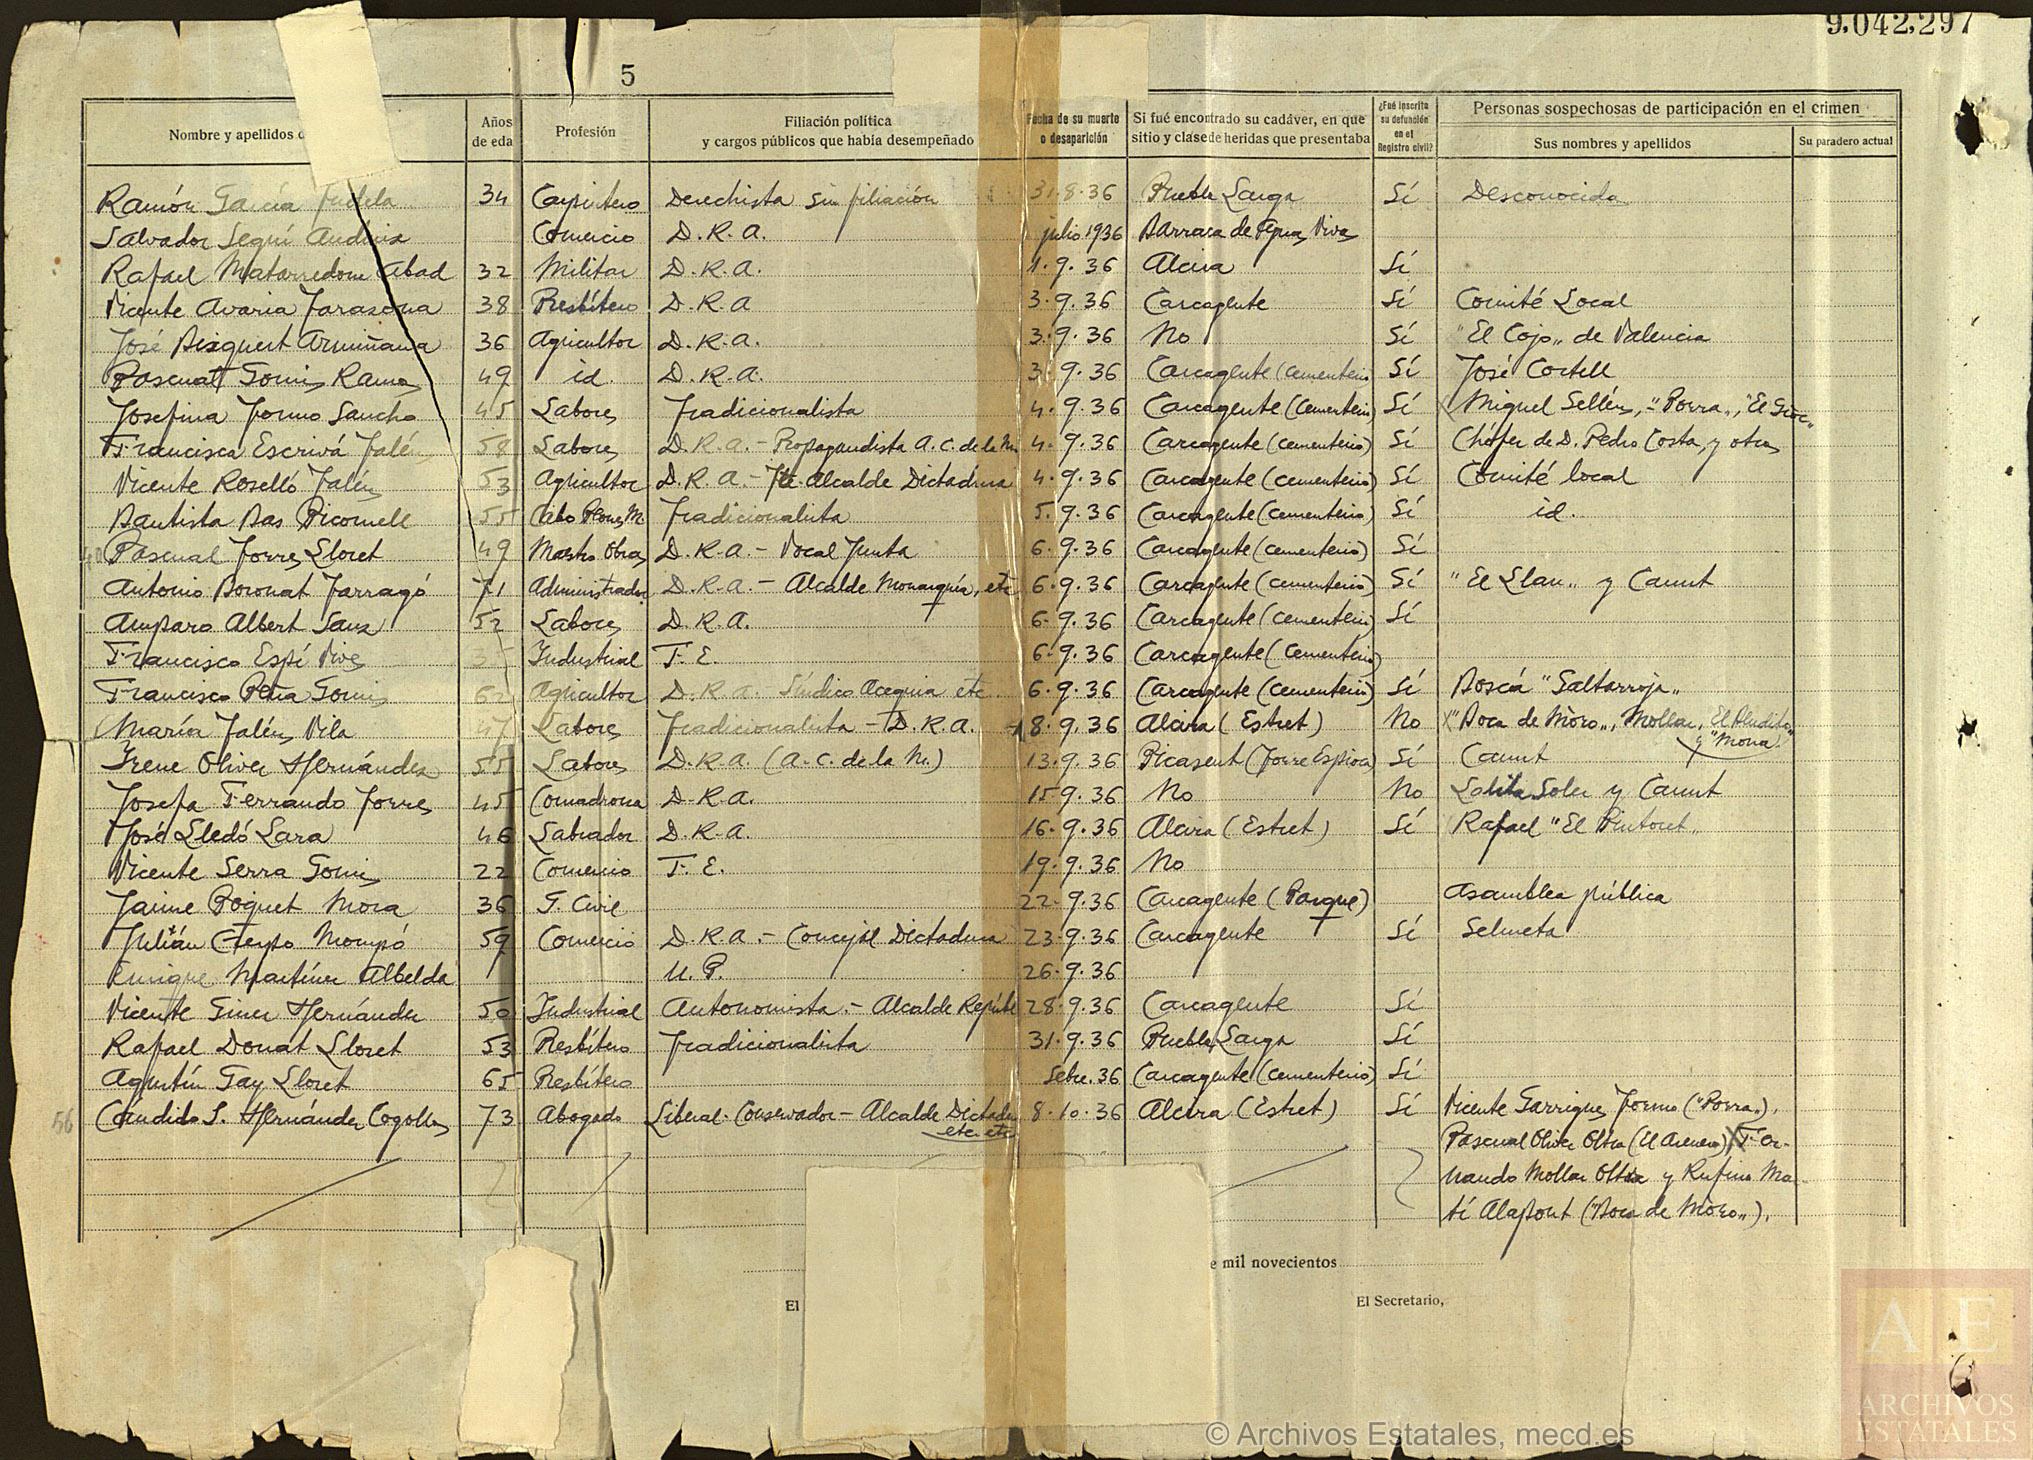 9.042.297
5
Nombre y apellidos d
Años de eda
Profesión
Filiación política y cargos públicos que había desempeñado
Fecha de su muerte o desaparición
Si fué encontrado su cadáver, en que sitio y clase de heridas que presentaba
¿Fué inscrita su defunción en el Registro civil?
Personas sospechosas de participación en el crimen
Sus nombres y apellidos
Su paradero actual
Ramón García 34 Carpintero Derechista sin filiación 31.8.36 Puebla Larga Sí Desconocido
Salvador Seguí Comercio D.R.A. julio 1936 Barraca de Aguas Vivas
Rafael Matarredona Abad 32 Militar D.R.A. 1.9.36 Alcira Sí
Vicente Avaria Tarazona 38 Presbítero D.R.A 3.9.36 Carcagente Sí Comité Local
José Bisquert Armiñana 36 Agricultor D.R.A. 3.9.36 No Sí "El Cojo" de Valencia
Pascual Gomis Rama 49 id. D.R.A. 3.9.36 Carcagente (cementerio Sí José Cortell
Josefina Tormo Sancho 45 Labores Tradicionalista 4.9.36 Carcagente (cementerio) Sí Miguel Sellés, "Porra",
Francisca Escrivá Talens 58 Labores D.R.A. - Propagandista A.C. de la M. 4.9.36 Carcagente (cementerio) Sí Chófer de D. Pedro Costa, y otros
Vicente Roselló Talens 53 Agricultor D.R.A. - Alcalde Dictadura 4.9.36 Carcagente (cementerio) Sí Comité local
Bautista Bas Picornell 55 Tradicionalista 5.9.36 Carcagente (cementerio) Sí id.
Pascual Torres Lloret 49 Maestro Obras D.R.A. - Vocal Junta 6.9.36 Carcagente (cementerio) Sí
Antonio Boronat Tarragó 71 Administrador D.R.A. - Alcalde Monarquía, etc 6.9.36 Carcagente (cementerio) Sí "El Llau" y Canut
Amparo Albert Sanz 52 Labores D.R.A. 6.9.36 Carcagente (cementerio) Sí
Francisco Espí Vives Industrial F.E. 6.9.36 Carcagente (cementerio)
Francisco Peña Gomis 62 Agricultor D.R.A. Síndico Acequia etc. 6.9.36 Carcagente (cementerio) Sí Boscá "Saltarroja"
María Talens Vila 47 Labores Tradicionalista - D.R.A. 8.9.36 Alcira (Estret) No "Boca de Mòro", Mollar, El Bendito"
y "Mona"
Irene Oliver Hernández 55 Labores D.R.A. (A.C. de la M.) 13.9.36 Picasent (Torre Espioca) Sí Canut
Josefa Ferrando Torres 45 Comadrona D.R.A. 15.9.36 No No Lolita Soler y Canut
José Lledó Lara 46 Labrador D.R.A. 16.9.36 Alcira (Estret) Sí Rafael "El Pintoret"
Vicente Serra Gomis 22 Comercio F.E. 19.9.36 No
Jaime Poquet Mora 36 G. Civil 22.9.36 Carcagente (Parque) Asamblea pública
Julián Crespo Mompó 59 Comercio D.R.A. - Concejal Dictadura 23.9.36 Carcagente Sí Selmeta
Enrique Martínez Albelda U.P. 26.9.36
Vicente Giner Hernández 50 Industrial Autonomista - Alcalde Repúbl 28.9.36 Carcagente Sí
Rafael Donat Lloret 53 Presbítero Tradicionalista 31.9.36 Puebla Larga Sí
Agustín Gay Lloret 65 Presbítero Sebre. 36 Carcagente (cementerio) Sí
56 Cándido S. Hernández Cogollos 73 Abogado Liberal-Conservador - Alcalde Dictadura 8.10.36 Alcira (Estret) Sí Vicente Garrigues Tormo ("Porra"),
etc etc
Pascual Oliver Oltra (El Arenero) X Fer-
nando Mollar Oltra y Rufino Ma-
tí Alapont ("Boca de Mòro").
e mil novecientos
El
El Secretario,
© Archivos Estatales, mecd.es
AE
ARCHIVOS
ESTATALES